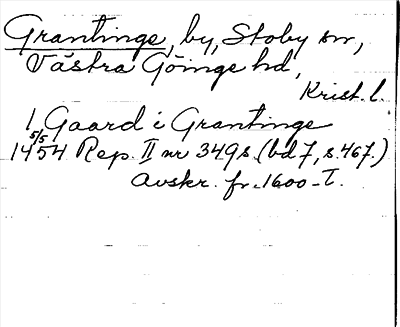 Grantinge, by, Stoby sn,
Västra Göinge hd,
Krist. l.
1 Gaard i Grantinge
5/5
1454 Rep. II nr 349s (bd 7, s. 467.)
Avskr. fr. 1600-T.